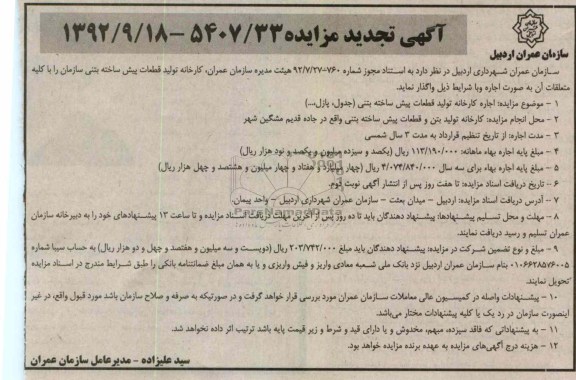 آگهی تجدید مزایده ۵۴۰۷/۳۳ – ۱۳۹۲/۹/۱۸
سازمان عمران اردبیل
سازمان عمران شهرداری اردبیل در نظر دارد به استناد مجوز شماره ۷۶۰-۹۲/۷/۲۷ هیئت مدیره سازمان عمران، کارخانه تولید قطعات پیش ساخته بتنی سازمان را با کلیه
متعلقات آن به صورت اجاره وبا شرایط ذیل واگذار نماید.
۱ - موضوع مزایده: اجاره کارخانه تولید قطعات پیش ساخته بتنی (جدول، پازل،..)
۲ - محل انجام مزایده: کارخانه تولید بتن و قطعات پیش ساخته بتنی واقع در جاده قدیم مشگین شهر
۳ - مدت اجاره: از تاریخ تنظیم قرارداد به مدت ۳ سال شمسی
۴ - مبلغ پایه اجاره بهاء ماهانه: ۱۱۳/۱۹۰/۰۰۰ ریال (یکصد و سیزده میلیون و یکصد و نود هزار ریال)
۵ - مبلغ پایه اجاره بهاء برای سه سال ۴/۰۷۴/۸۴۰/۰۰۰ ریال (چهار میلیارد و هفتاد و چهار میلیون و هشتصد و چهل هزار ریال)
۶ - تاریخ دریافت اسناد مزایده: تا هفت روز پس از انتشار آگهی نوبت دوم.
۷ - آدرس دریافت اسناد مزایده: اردبیل - میدان بعثت - سازمان عمران شهرداری اردبیل - واحد پیمان.
۸ - مهلت و محل تسلیم پیشنهادها: پیشنهاد دهندگان باید تا ده روز پس از آخرین مهلت دریافت اسناد مزایده و تا ساعت ۱۳ پیشنهادهای خود را به دبیرخانه سازمان
عمران تسلیم و رسید دریافت نمایند.
۹ - مبلغ و نوع تضمین شرکت در مزایده: پیشنهاد دهندگان باید مبلغ ۲۰۳/۷۴۲/۰۰۰ ریال (دویست و سه میلیون و هفتصد و چهل و دو هزار ریال) به حساب سیبا شماره
۰۱۰۶۶۲۸۵۷۶۰۰۵ بنام سازمان عمران اردبیل نزد بانک ملی شعبه معادی واریز و فیش واریزی و یا به همان مبلغ ضمانتنامه بانکی را طبق شرایط مندرج در اسناد مزایده
تحویل نمایند.
۱۰ - پیشنهادات واصله در کمیسیون عالی معاملات سازمان عمران مورد بررسی قرار خواهد گرفت و در صورتیکه به صرفه و صلاح سازمان باشد مورد قبول واقع، در غیر
اینصورت سازمان در رد یک یا کلیه پیشنهادات مختار می‌باشد.
۱۱ - به پیشنهاداتی که فاقد سپرده، مبهم، مخدوش و یا دارای قید و شرط و زیر قیمت پایه باشد ترتیب اثر داده نخواهد شد.
۱۲ - هزینه درج آگهی‌های مزایده به عهده برنده مزایده خواهد بود.
سید علیزاده - مدیرعامل سازمان عمران